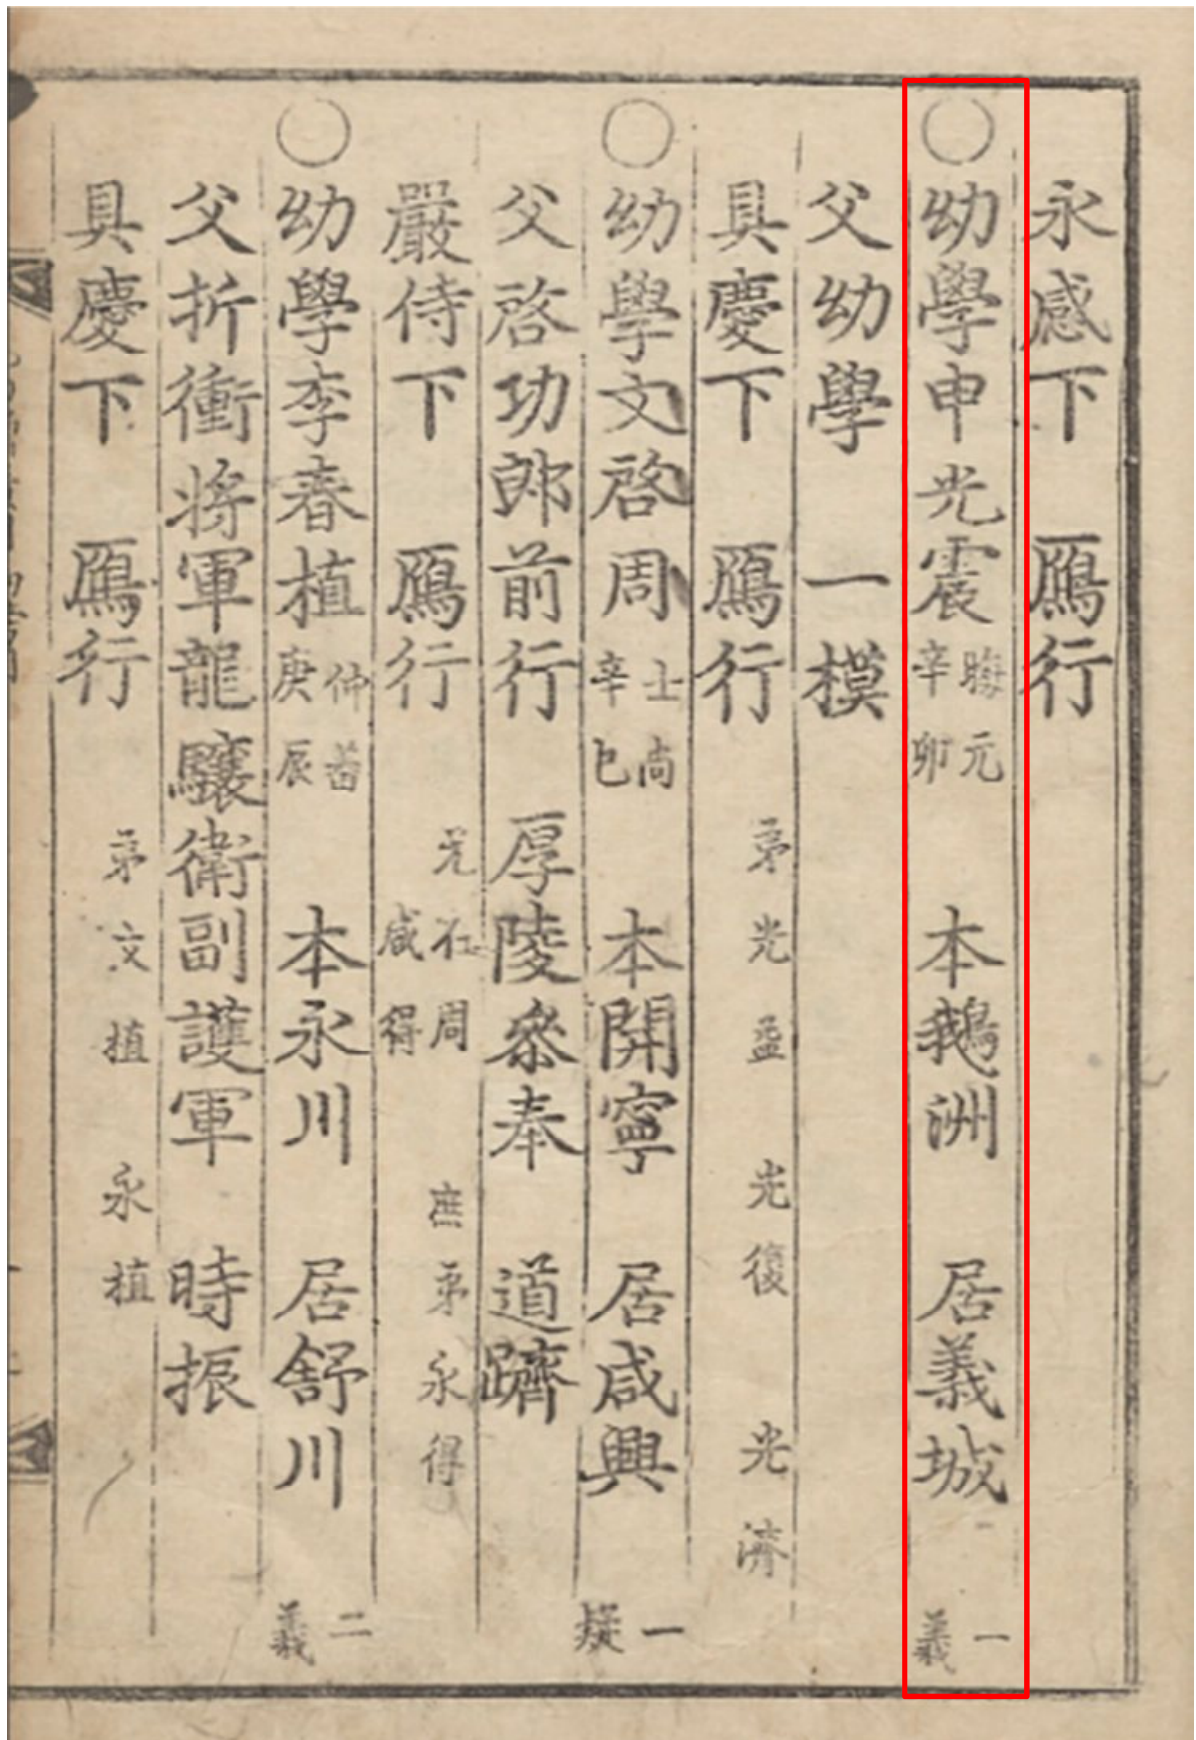 永感下 鴈行
○幼學申光震 晦元 辛卯 本鵝洲 居義城 一義
父幼學 一模
具慶下 鴈行 弟光孟 光復 光濟
○幼學文啓周 士尚 辛巳 本開寧 居咸興 一疑
父啓功郎前行 厚陵叅奉 道躋
嚴侍下 鴈行 兄在周 咸得 庶弟永得
○幼學李春植 仲茁 庚辰 本永川 居舒川 二義
父折衝將軍龍驤衛副護軍 時振
具慶下 鴈行 弟文植 永植